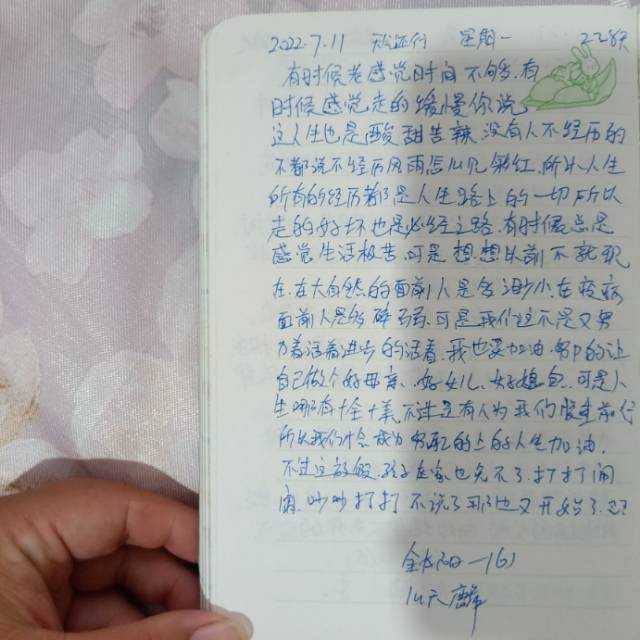 2022.7.11 星期一 228天
有时候老感觉时间不够.有
时候感觉走的缓慢你说
这人生也是酸甜苦辣.没有人不经历的
不都说不经历风雨怎么见彩虹.所以人生
所有的经历都是人生路上的一切所以
走的好坏也是必经之路.有时候总是
感觉生活极苦.可是想想从前不就现
在.在大自然的面前人是多渺小.在疫病
面前人是多脆弱.可是我们还不是又努
力着活着进步的活着.我也要加油.努力的让
自己做个好母亲.好女儿.好媳妇.可是人
生哪有十全十美不过没有人为我们
所以我们才会成为自己的人生加油.
不过这放假.孩子在家也免不了.打打闹
闹.吵吵打打不说了那边又开始了.